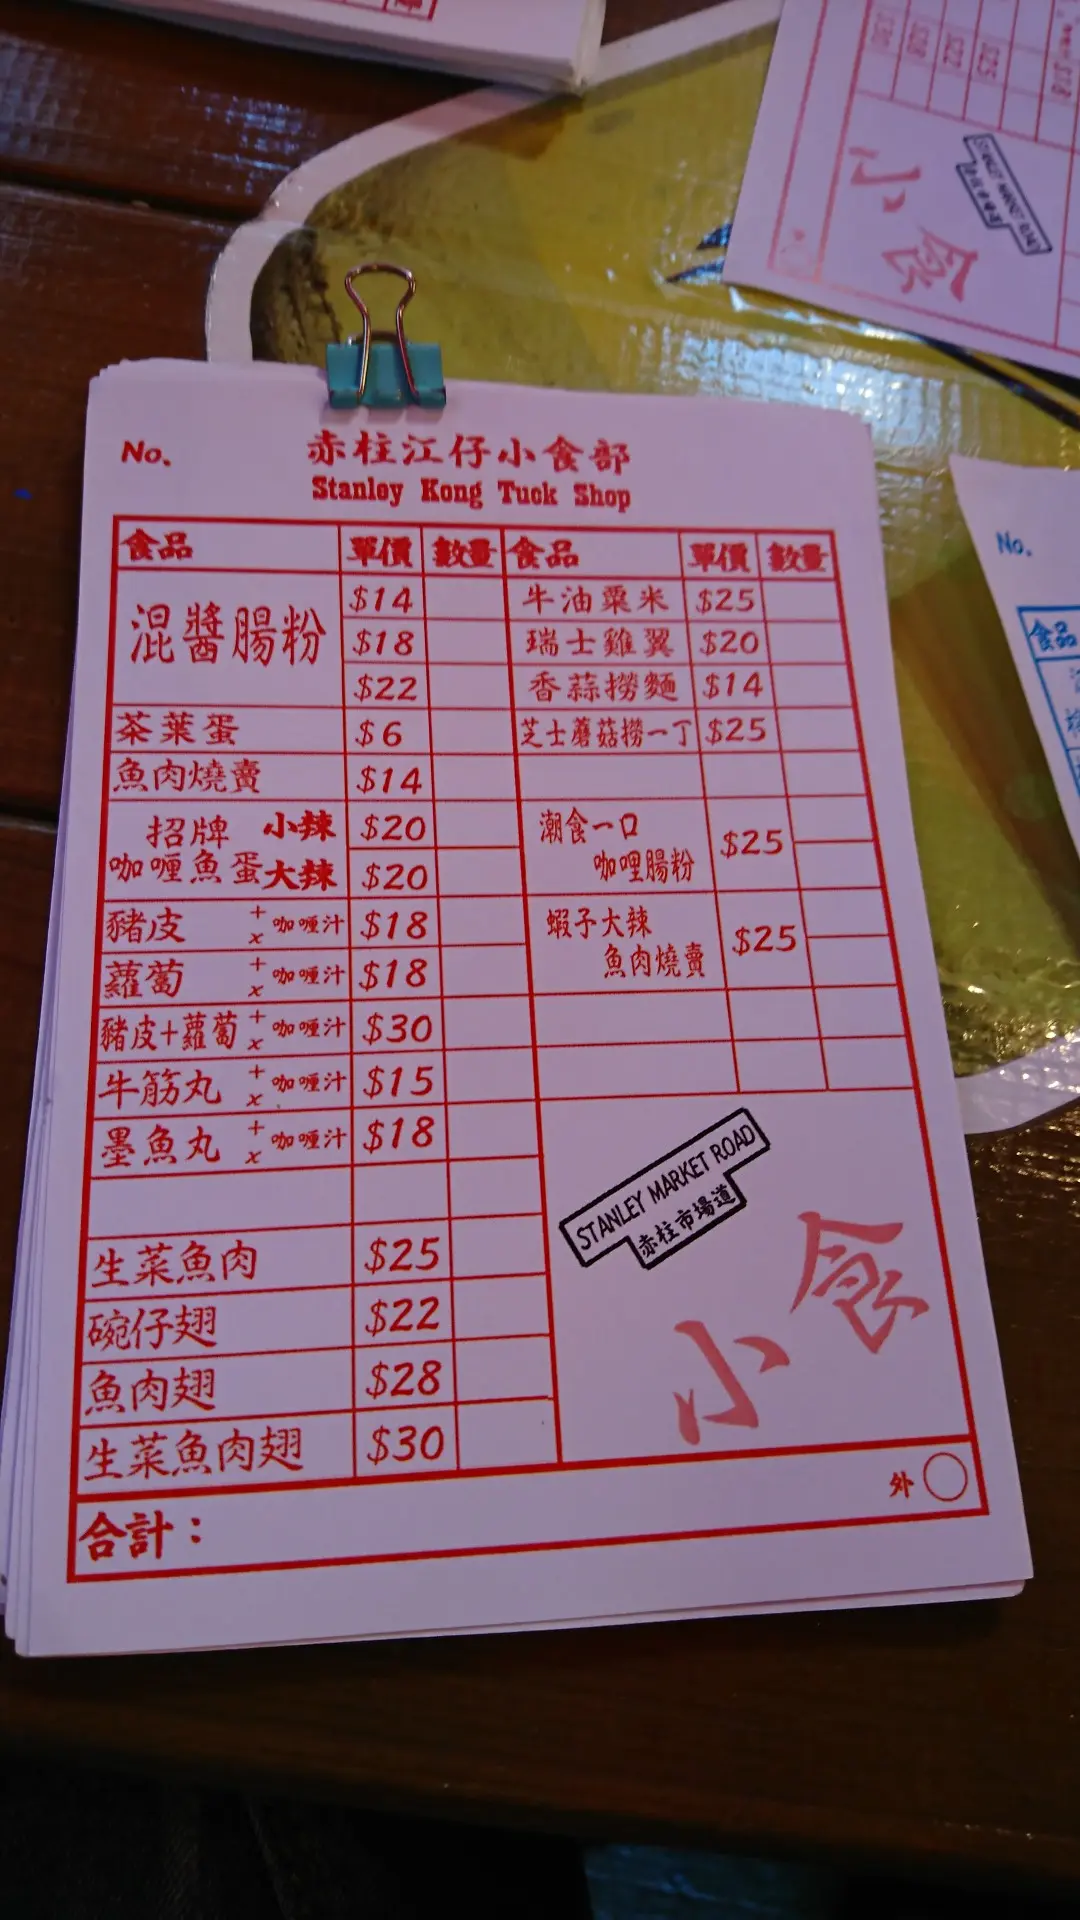 No.
赤柱江仔小食部
Stanley Kong Tuck Shop
食品 單價 數量 食品 單價 數量
混醬腸粉 $14
$18
$22
茶葉蛋 $6
魚肉燒賣 $14
招牌咖喱魚蛋 小辣 $20
大辣 $20
豬皮 +x 咖喱汁 $18
蘿蔔 +x 咖喱汁 $18
豬皮+蘿蔔 +x 咖喱汁 $30
牛筋丸 +x 咖喱汁 $15
墨魚丸 +x 咖喱汁 $18
生菜魚肉 $25
碗仔翅 $22
魚肉翅 $28
生菜魚肉翅 $30
牛油粟米 $25
瑞士雞翼 $20
香蒜撈麵 $14
芝士蘑菇撈一丁 $25
潮食一口
咖哩腸粉 $25
蝦子大辣
魚肉燒賣 $25
STANLEY MARKET ROAD
赤柱市場道
小食
外
合計：
$25
$22
$28
$30
STANLEY MARKET ROAD
赤柱市場道
小食
No.
食品